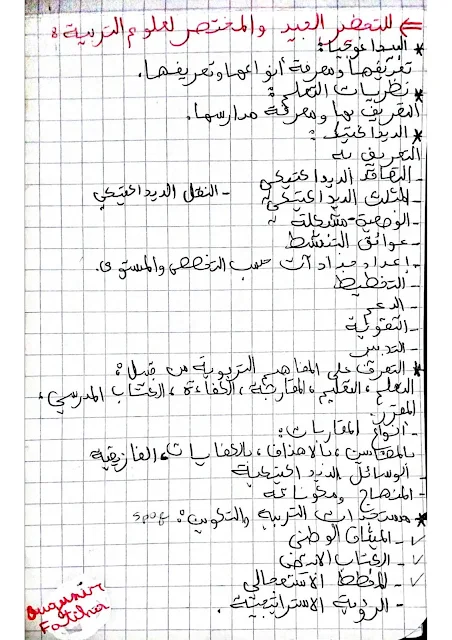 ⇐ للتحضير الجيد والمختصر لعلوم التربية :
* البيداغوجيا :
تعريفها ومعرفة أنواعها وتعريفها.
* نظريات التعلم :
التعريف بها ومعرفة مدارسها.
* الديداكتيك :
التعريف به
- التعاقد الديداكتيكي - النقل الديداكتيكي
- المثلث الديداكتيكي
- الوضعية - مشكلة
- عوائق التنشيط
- إعداد جذاذات حسب التخصص والمستوى.
- التخطيط
- الدعم
- التقويم
- التدريس
* التعرف على المفاهيم التربوية من قبيل :
التعلم، التعليم، المقاربة، الكفاءة، الكتاب المدرسي،
المقرر.
- أنواع المقاربات :
بالمضامين، بالأهداف، بالكفايات، الفارقية
- الوسائل الديداكتيكية
- المنهاج ومكوناته
* مستجدات التربية والتكوين :
✓ - الميثاق الوطني
✓ - الكتاب الأبيض
✓ - المخطط الاستعجالي
- الرؤية الاستراتيجية.
Ougunir
Fatiha